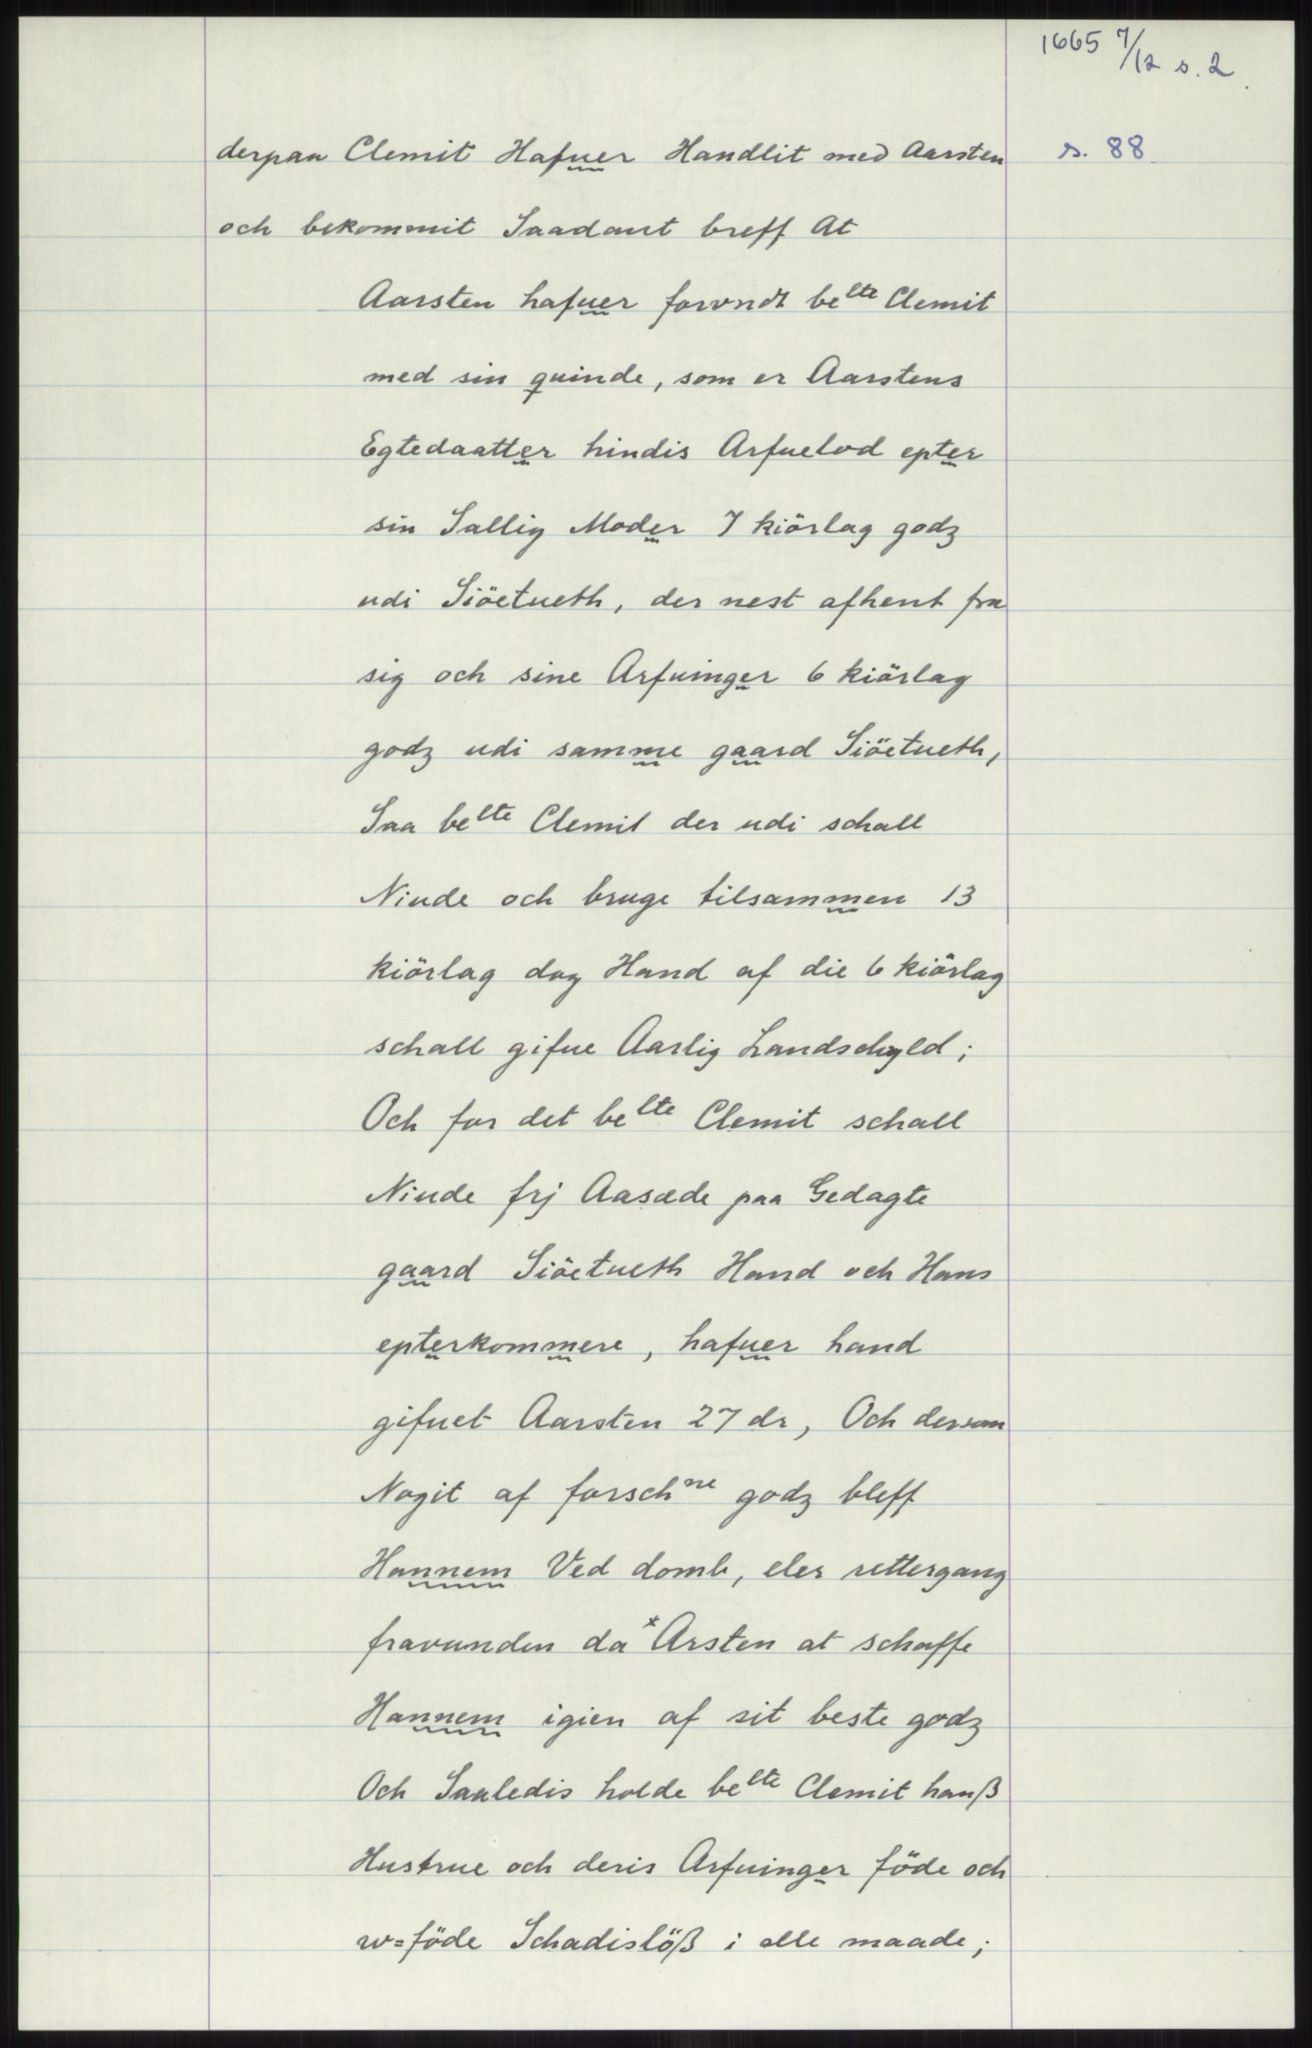 1665 7/12 s. 2
derpaa Clemit Hafuer Handlit med Aarsten s. 88
och bekommit Saadant breff At
Aarsten hafuer forvndt belte Clemit
med sin quinde, som er Aarstens
Egtedaatter hindis Arfuelod epter
sin Sallig Moder 7 kiörlag godz
udi Siöetueth, der nest afhent fra
sig och sine Arfuinger 6 kiörlag
godz udi samme gaard Siöetueth,
Saa belte Clemit der udi schall
Niude och bruge tilsammen 13
kiörlag dog Hand af die 6 kiörlag
schall gifue Aarlig Landschyld;
Och for det belte Clemit schall
Niude frj Aasæde paa Gedagte
gaard Siöetueth Hand och Hans
epterkommere, hafuer hand
gifuet Aarsten 27 dr, Och dersom
Nogit af forschne godz bleff
Hannem Ved domb, eler rettergang
fravunden da* Arsten at schaffe
Hannem igien af sit beste godz
Och Saaledis holde belte Clemit hanß
Hustrue och deris Arfuinger föde och
w=föde Schadislöß i alle maade;